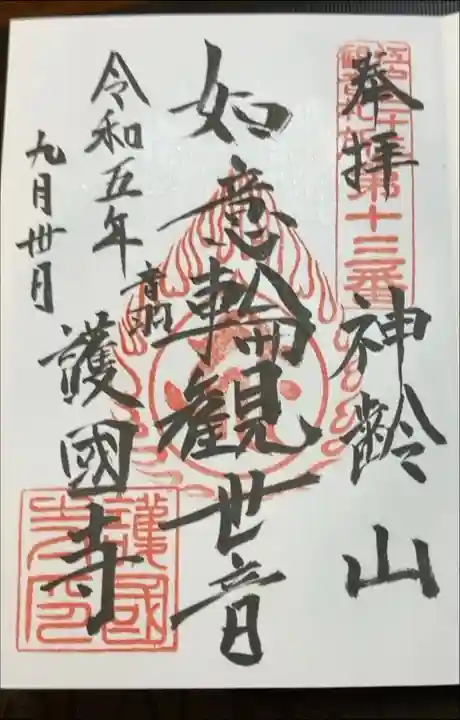 奉拝
第十三番
神齢山
如意輪観世音
音羽
護國寺
令和五年
九月丗日
護國